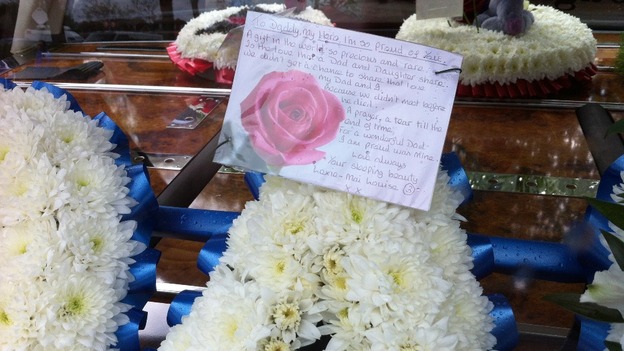 To Daddy My Hero I'm so Proud of You
A gift in the world, so precious and rare
Is that love that a Dad and Daughter share,
we didn't get a chance to share that love
my Dad and I
Because we didn't meet before
he died
A prayer, a tear till the
end of time,
For a wonderful Dad
I am proud was Mine.
Love always
Your sleeping beauty
Mai Louise
x x